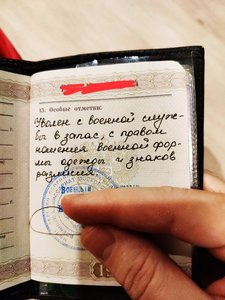 13. Особые отметки:
Уволен с военной служ-
бы в запас, с правом
ношения военной фор-
мы одежды и знаков
различия